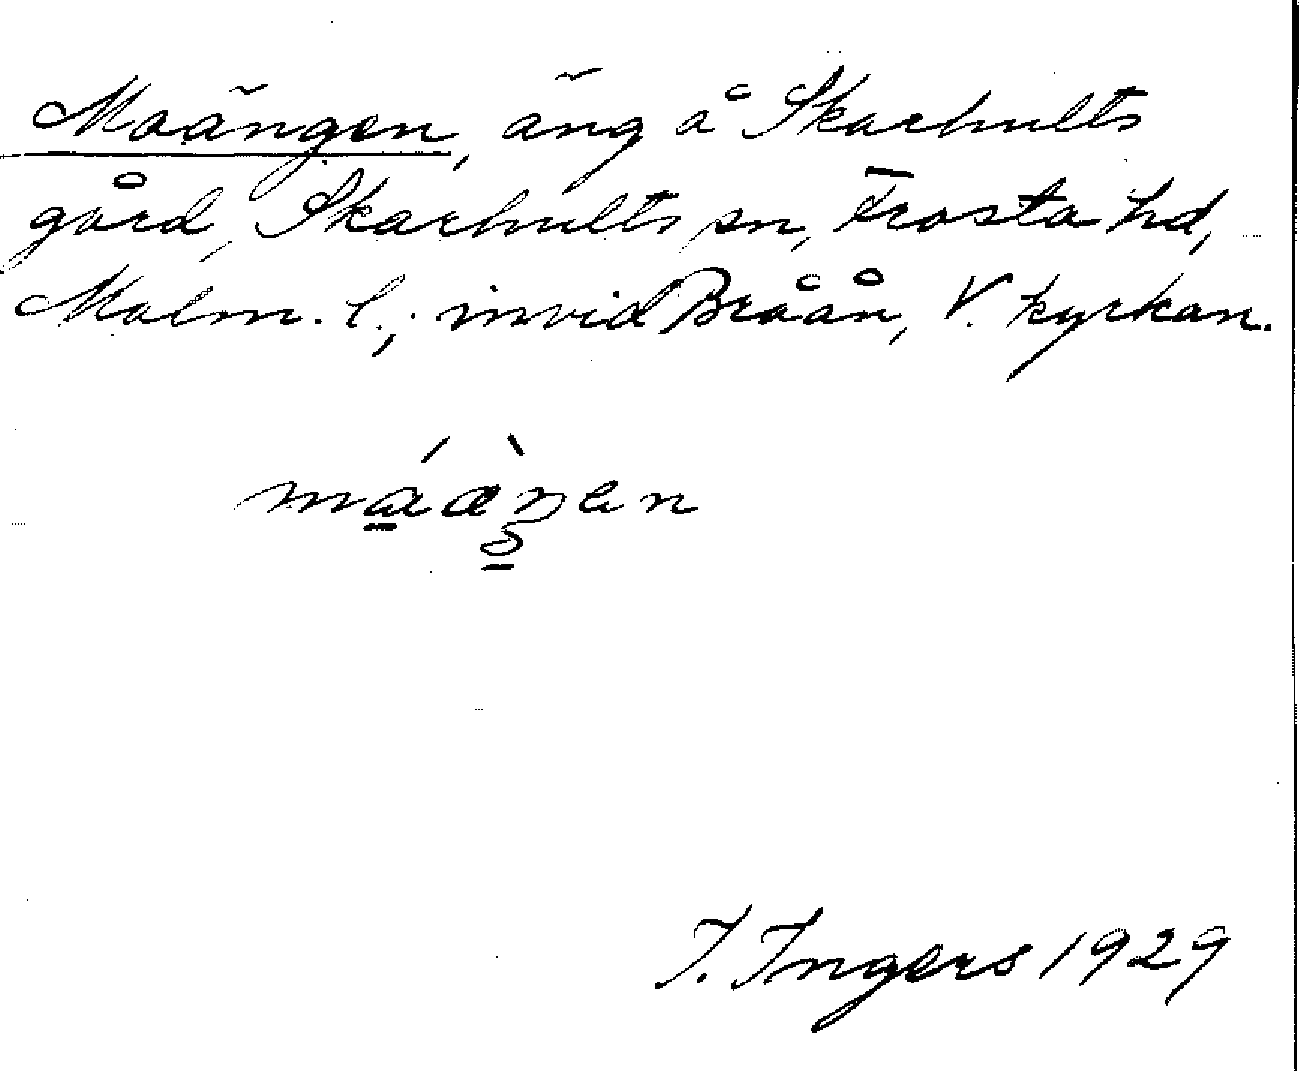 Moängen, äng å Skarhults
gård, Skarhults sn, Frosta hd,
Malm. l.; invid Bråån, V. kyrkan.
I. Ingers 1929